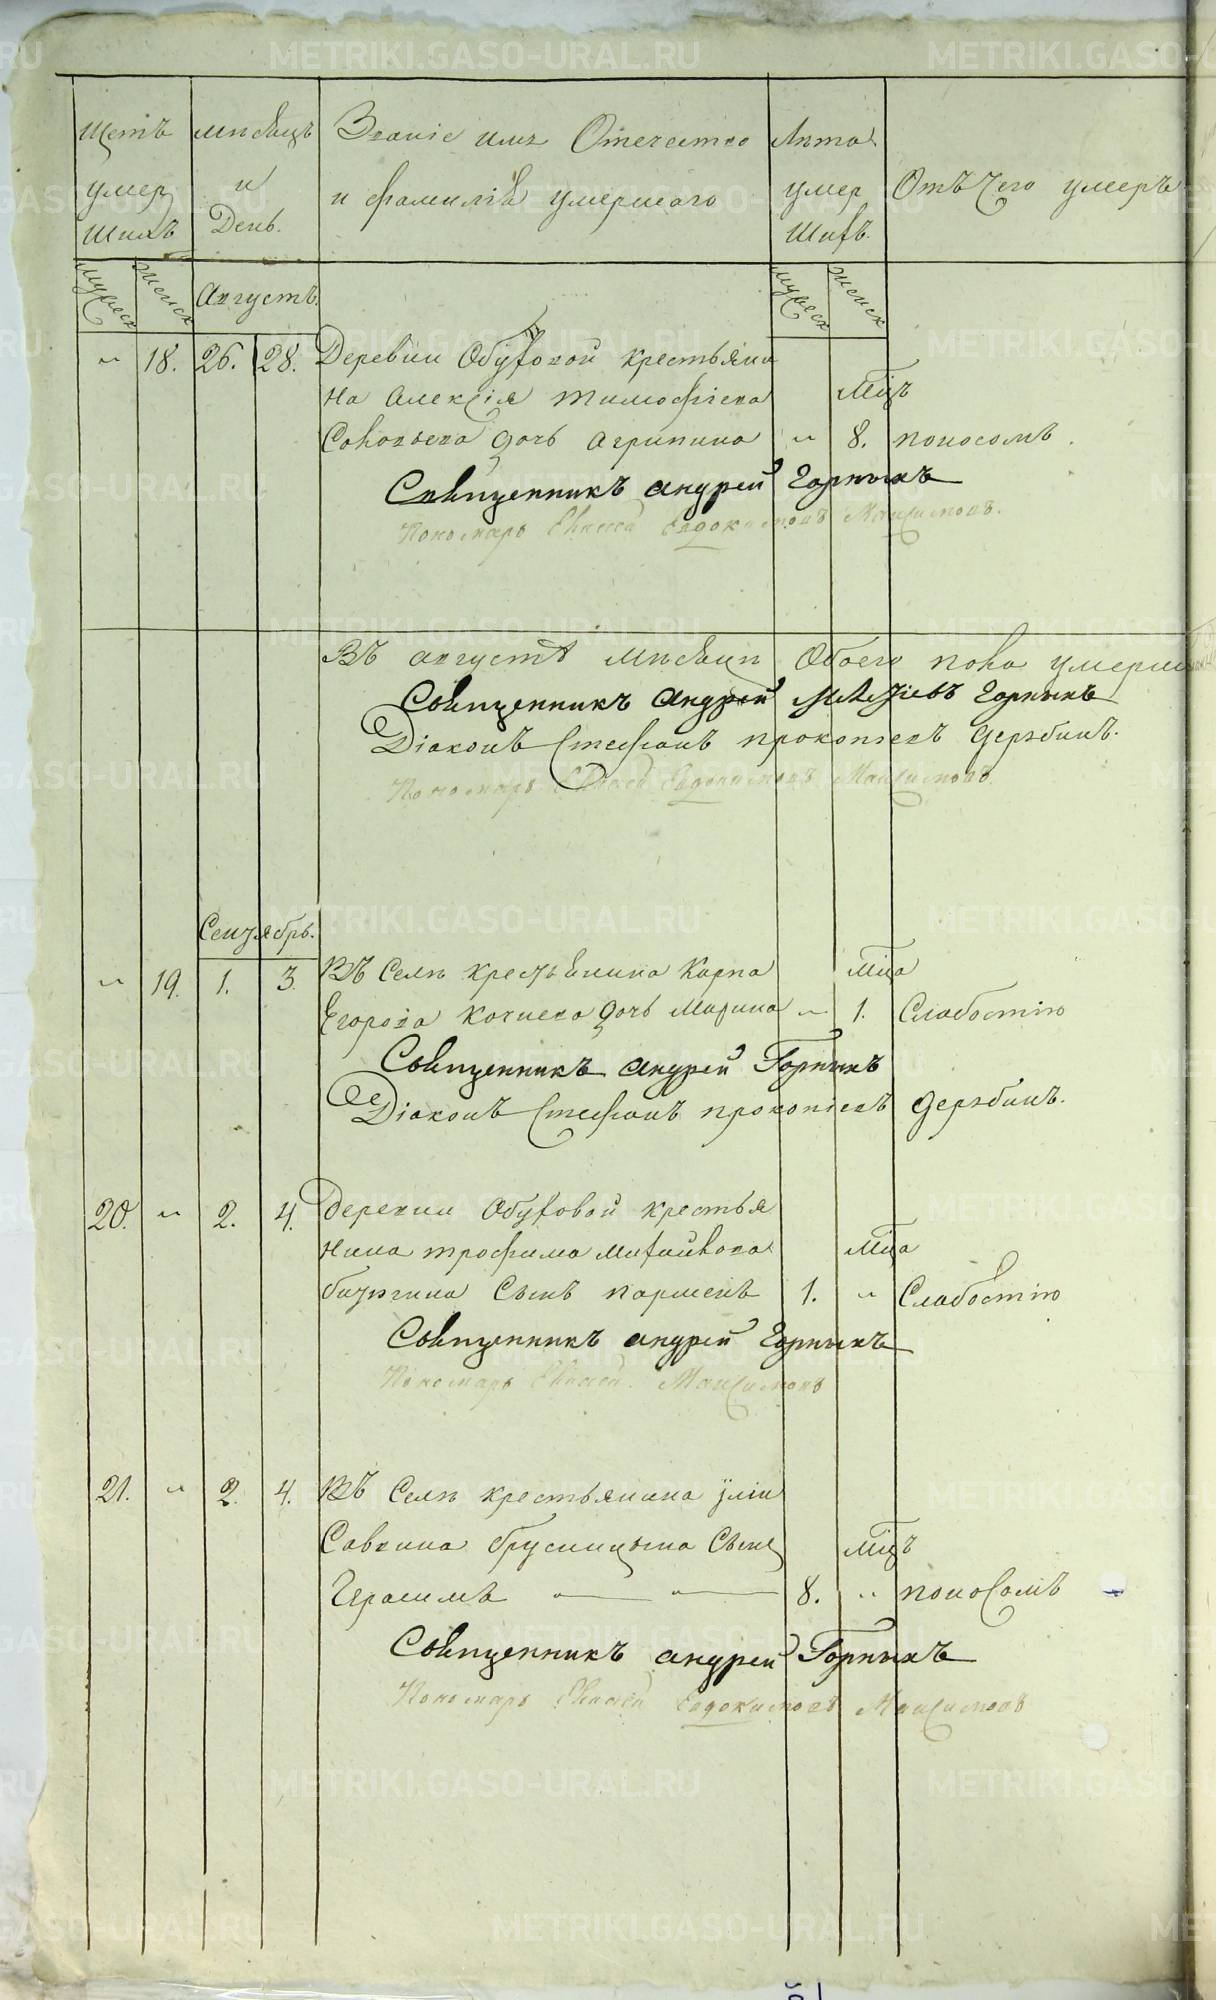 Щетъ умер шимъ
мѣсяцъ и День.
Званіе имя Отечество
и фамилія умершаго
Лѣта умер шихъ.
Отъ Чего умеръ
мужеск женск
Августъ.
мужеск женск
" 18. 26. 28. Деревни Обуховой крестьяни
на Алексія тимофіева мцъ
дочь агрипина " 8. поносомъ.
Священникъ андрей Горныхъ
Пономарь Евдокимовъ Максимовъ.
Въ августѣ мѣсяцѣ Обоего пола умерш
Священникъ андрей Горныхъ
Діаконъ Стефанъ прокопіевъ
Пономарь Евдокимовъ Максимовъ.
Сентябрь.
" 19. 1. 3. Въ Селѣ крестьянина Карпа мца
Егорова дочь Марина " 1. Слабостію
Священникъ андрей Горныхъ
Діаконъ Стефанъ прокопіевъ
20. " 2. 4. Деревни Обуховой крестья
нина трофима мца
Сынъ парменъ 1. " Слабостію
Священникъ андрей Горныхъ
Пономарь Максимовъ
21. " 2. 4. Въ Селѣ крестьянина
Саввина брусницына Сынъ мцъ
Герасимъ 8. " поносомъ
Священникъ андрей Горныхъ
Пономарь Евдокимовъ Максимовъ
METRIKI.GASO-URAL.RU